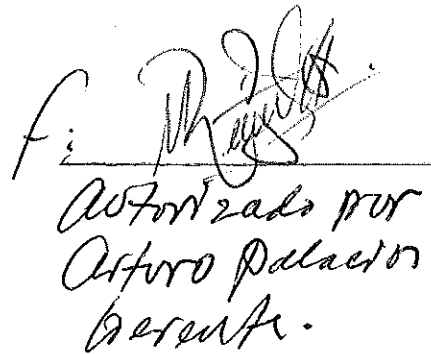 f:
Autorizado por
Arturo Palacios
Gerente.